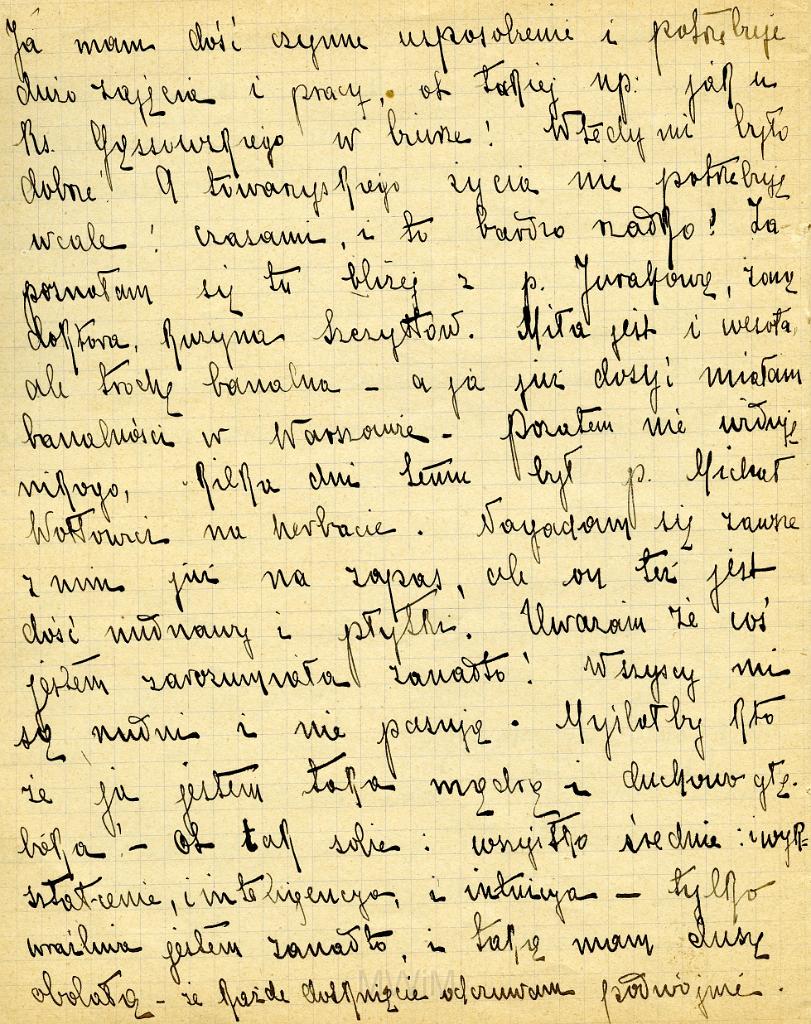 Ja mam dość czynne usposobienie i potrzebuję
dużo zajęcia i pracy, ot takiej np: jak u
ks. Gąssowskiego w biurze! Wtedy mi było
dobrze! A towarzyskiego życia nie potrzebuję
wcale! czasami, i to bardzo rzadko! Za
poznałam się tu bliżej z p. Jurakową, żoną
doktora, kuzyna Szczyttów. Miła jest i wesoła,
ale trochę banalna – a ja już dosyć miałam
banalności w Warszawie – Pozatem nie widuję
nikogo, kilka dni temu był p. Michał
na herbacie. Nagadam się zawsze
z nim już na zapas, ale on też jest
dość nudnawy i płytki. Uważam że coś
jestem zarozumiała zanadto! Wszyscy mi
są nudni i nie pasują. Myślałby kto
że ja jestem taka mądrą i duchowo głę-
boka! – Ot tak sobie: wszystko średnie: i wyk-
ształcenie, i inteligencja, i intuicja – tylko
wrażliwa jestem zanadto, i taką mam duszę
obolałą – że każde dotknięcie odczuwam podwójnie.
MWiM